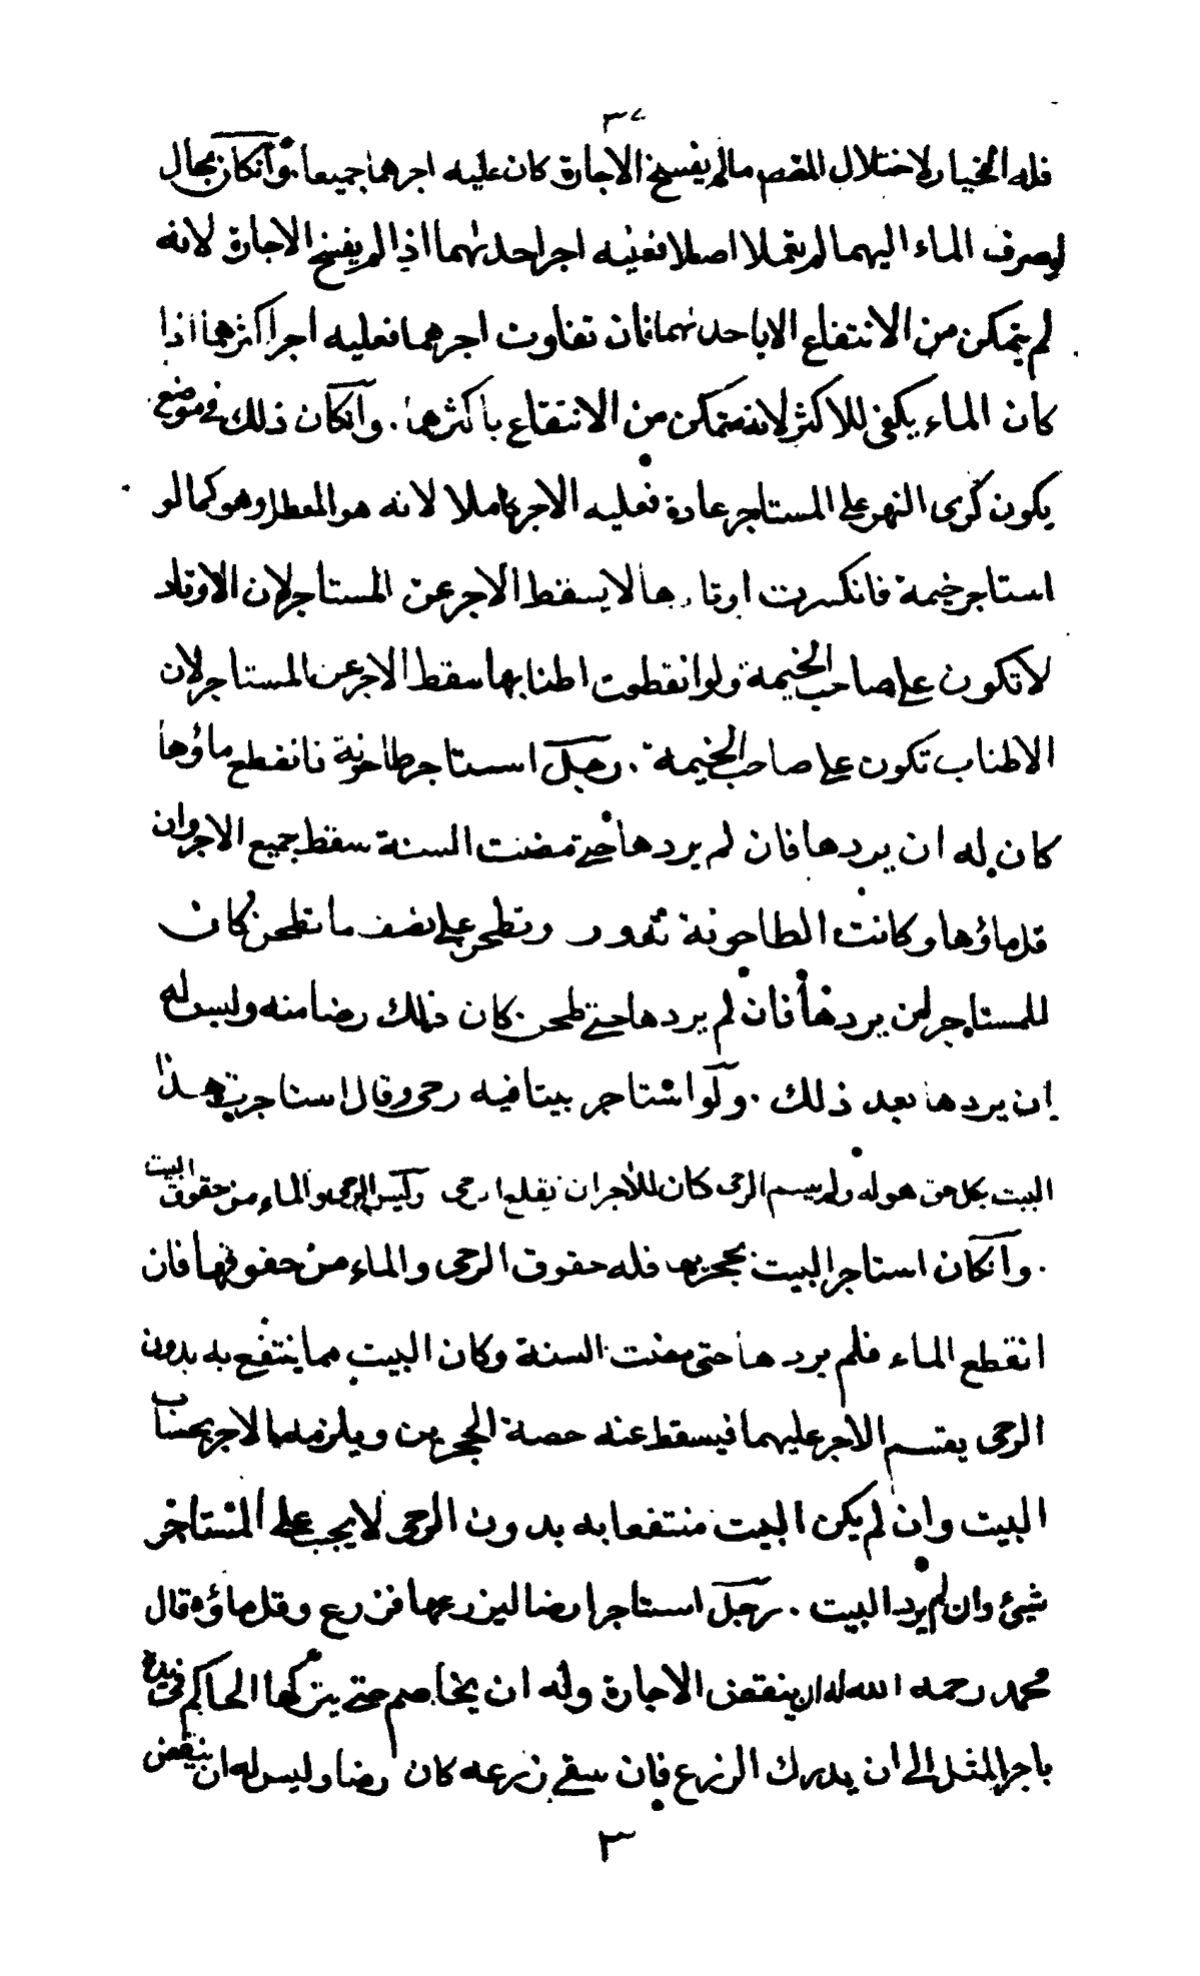 ٣٧
فله الخيار لاختلال المقصم مالم يفسخ الاجارة كان عليه اجرهما جميعا وآنكان بحال
لوصرف الماء اليهما لم يعملا اصلا فعليه اجر احدىهما اذا لم يفسخ الاجارة لانه
لم يتمكن من الانتفاع الا باحدىهما فان تفاوت اجرهما فعليه اجر اكثرهما اذا
كان الماء يكفى للاكثر لانه متمكن من الانتفاع باكثرهما . وآنكان ذلك فى موضع
يكون كرى النهر على المستاجر عادة فعليه الاجر كاملا لانه هو المعطل وهو كما لو
استاجر خيمة فانكسرت اوتادها لا يسقط الاجر عن المستاجر لان الاوتاد
لا تكون على صاحب الخيمة ولو انقطعت اطنابها سقط الاجر عن المستاجر لان
الاطناب تكون على صاحب الخيمة . رجل استاجر طاحونة فانقطع ماؤها
كان له ان يردها فان لم يردها حتى مضت السنة سقط جميع الاجر وان
قل ماؤها وكانت الطاحونة تدور وتطحن على نصف ما تطحن كان
للمستاجر ان يردها فان لم يردها حتى طحن كان ذلك رضا منه وليس له
ان يردها بعد ذلك . ولو استاجر بيتا فيه رحى وقال استاجرت هذا
البيت بكل حق هو له ولم يسم الرحى كان للآجر ان يقلع الرحى وليس الرحى والماء من حقوق البيت
. وآنكان استاجر البيت بحجريها فله حقوق الرحى والماء من حقوقها فان
انقطع الماء فلم يردها حتى مضت السنة وكان البيت مما ينتفع به بدون
الرحى يقسم الاجر عليهما فيسقط عنه حصة الحجرين ويلزمه الاجر بحساب
البيت وان لم يكن البيت منتفعا به بدون الرحى لا يجب على المستاجر
شيئ وان لم يرد البيت . رجل استاجر ارضا ليزرعها فزرع وقل ماؤه قال
محمد رحمه الله له ان ينقض الاجارة وله ان يخاصم حتى يتركها الحاكم فى يده
باجر المثل الى ان يدرك الزرع فان سقى زرعه كان رضا وليس له ان ينقض
٣